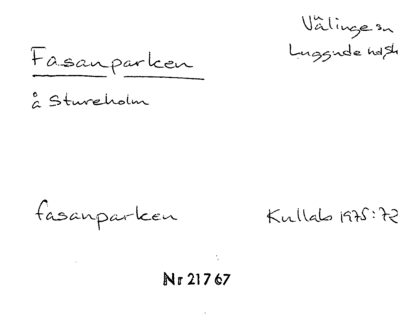 Välinge sn
Luggude hd, sk
Fasanparken
å Stureholm
fasanparken
Kullab 1975:72
Nr 21767